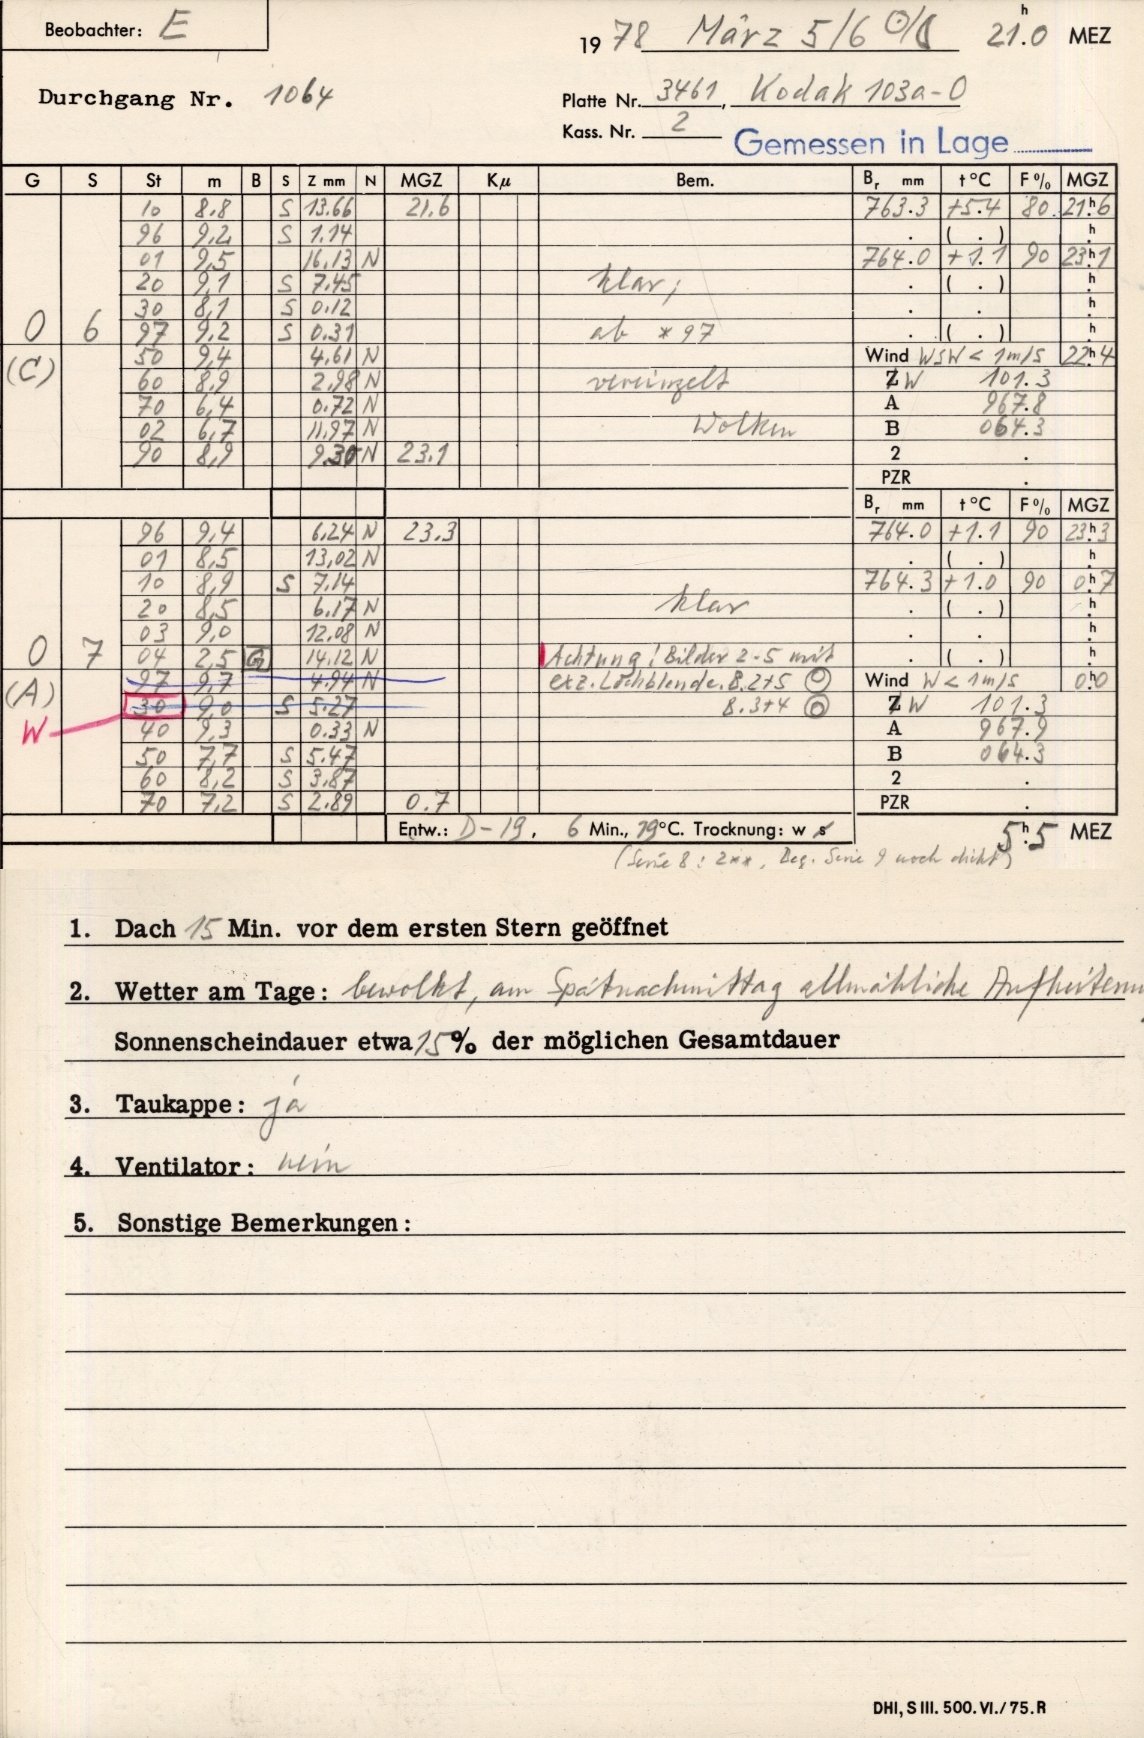 Beobachter: E
1978 März 5/6 ☉/☾ 21.0 h MEZ
Durchgang Nr. 1064
Platte Nr. 3461, Kodak 103a-O
Kass. Nr. 2
Gemessen in Lage
G S St m B S Z mm N MGZ Kμ Bem. Br mm t°C F% MGZ
10 8.8 S 13.66 21.6 763.3 +5.4 80 21h6
96 9,2 S 1.14 . ( . ) h
01 9,5 16,13 N 764.0 +1.1 90 23h1
20 9,1 S 7.45 klar; . ( . ) h
30 8,1 S 0.12 . . h
0 6 97 9,2 S 0.31 ab *97 . ( . ) h
(C) 50 9,4 4,61 N Wind WSW < 1m/s 22h4
60 8,9 2,98 N vereinzelt Z W 101.3
70 6,4 0.72 N A 967.8
02 6,7 11,97 N Wolken B 064.3
90 8,9 9.30 N 23.1 2 .
PZR .
Br mm t°C F% MGZ
96 9,4 6,24 N 23.3 764.0 +1.1 90 23h3
01 8,5 13,02 N . ( . ) h
10 8,9 S 7.14 764.3 +1.0 90 0h7
20 8,5 6.17 N klar . ( . ) h
03 9,0 12,08 N . . h
0 7 04 2,5 G 14.12 N Achtung! Bilder 2-5 mit . ( . ) h
(A) 97 9,7 4.94 N exz. Lochblende. B.2+5 Wind W < 1m/s 0h0
30 9,0 S 5.27 B.3+4 Z W 101.3
W 40 9,3 0.33 N A 967.9
50 7,7 S 5.47 B 064.3
60 8,2 S 3,87 2 .
70 7,2 S 2.89 0.7 PZR .
Entw.: D-19, 6 Min., 19°C. Trocknung: w s 5h5 MEZ
(Serie 8: 2**, Beg. Serie 9 noch dicht)
1. Dach 15 Min. vor dem ersten Stern geöffnet
2. Wetter am Tage: bewölkt, am Spätnachmittag allmähliche
Sonnenscheindauer etwa 15% der möglichen Gesamtdauer
3. Taukappe: ja
4. Ventilator: nein
5. Sonstige Bemerkungen:
DHI, S III. 500. VI./75. R